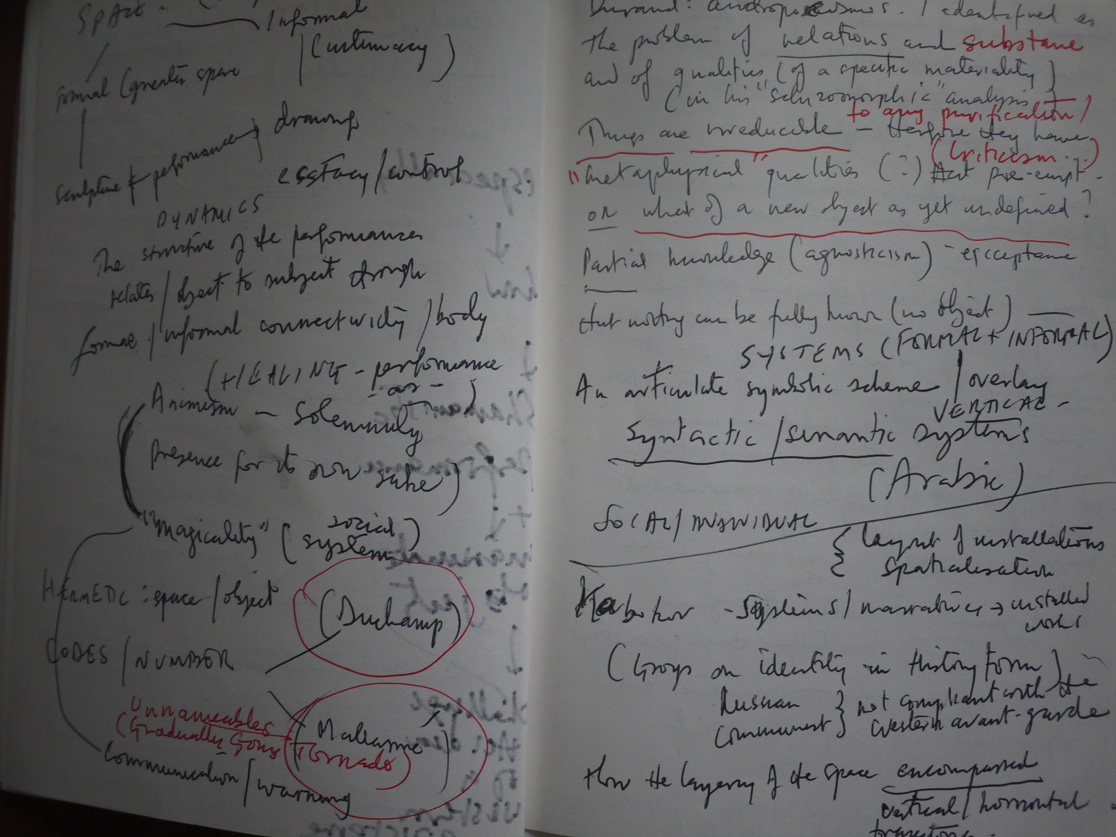 SPACE
Informal
(customary)
Formal (greater space
sculpture & performance
drawings
esstacy/control
DYNAMICS
The structure of the performances
relates/object to subject through
formal/informal connectivity/body
(HEALING - performance
as -
Animism - Solemnity
Presence for its own sake)
"magicality" (social
system)
HERMETIC : space/object
(Duchamp)
CODES/NUMBER
Unnameables
(Gradually Going Tornado)
communication/warning
. I identified as
the problem of relations and substane
and of qualities (of a specific materiality)
(in his "schizomorphic" analysis)
to any purification/
Things are irreducable - therefore they have
(Criticism..)
"metaphysical" qualities (?) that pre-empt-
or what of a new object as yet undefined?
Partial knowledge (agnosticism) - escceptance
that nothing can be fully known (no object)
SYSTEMS (FORMAL + INFORMAL)
An articulate symbolic scheme/overlay
VERTICAL -
Syntactic/semantic systems
(Arabic)
SOCIAL/INDIVIDUAL
{ layout of installations
spatialisation
Kabakov - Systems/narratives → installed
works
(Groys on identity in History form)
Russian } not compliant with the
communist } western avant-garde
How the layering of the space encompassed
vertical/horizontal